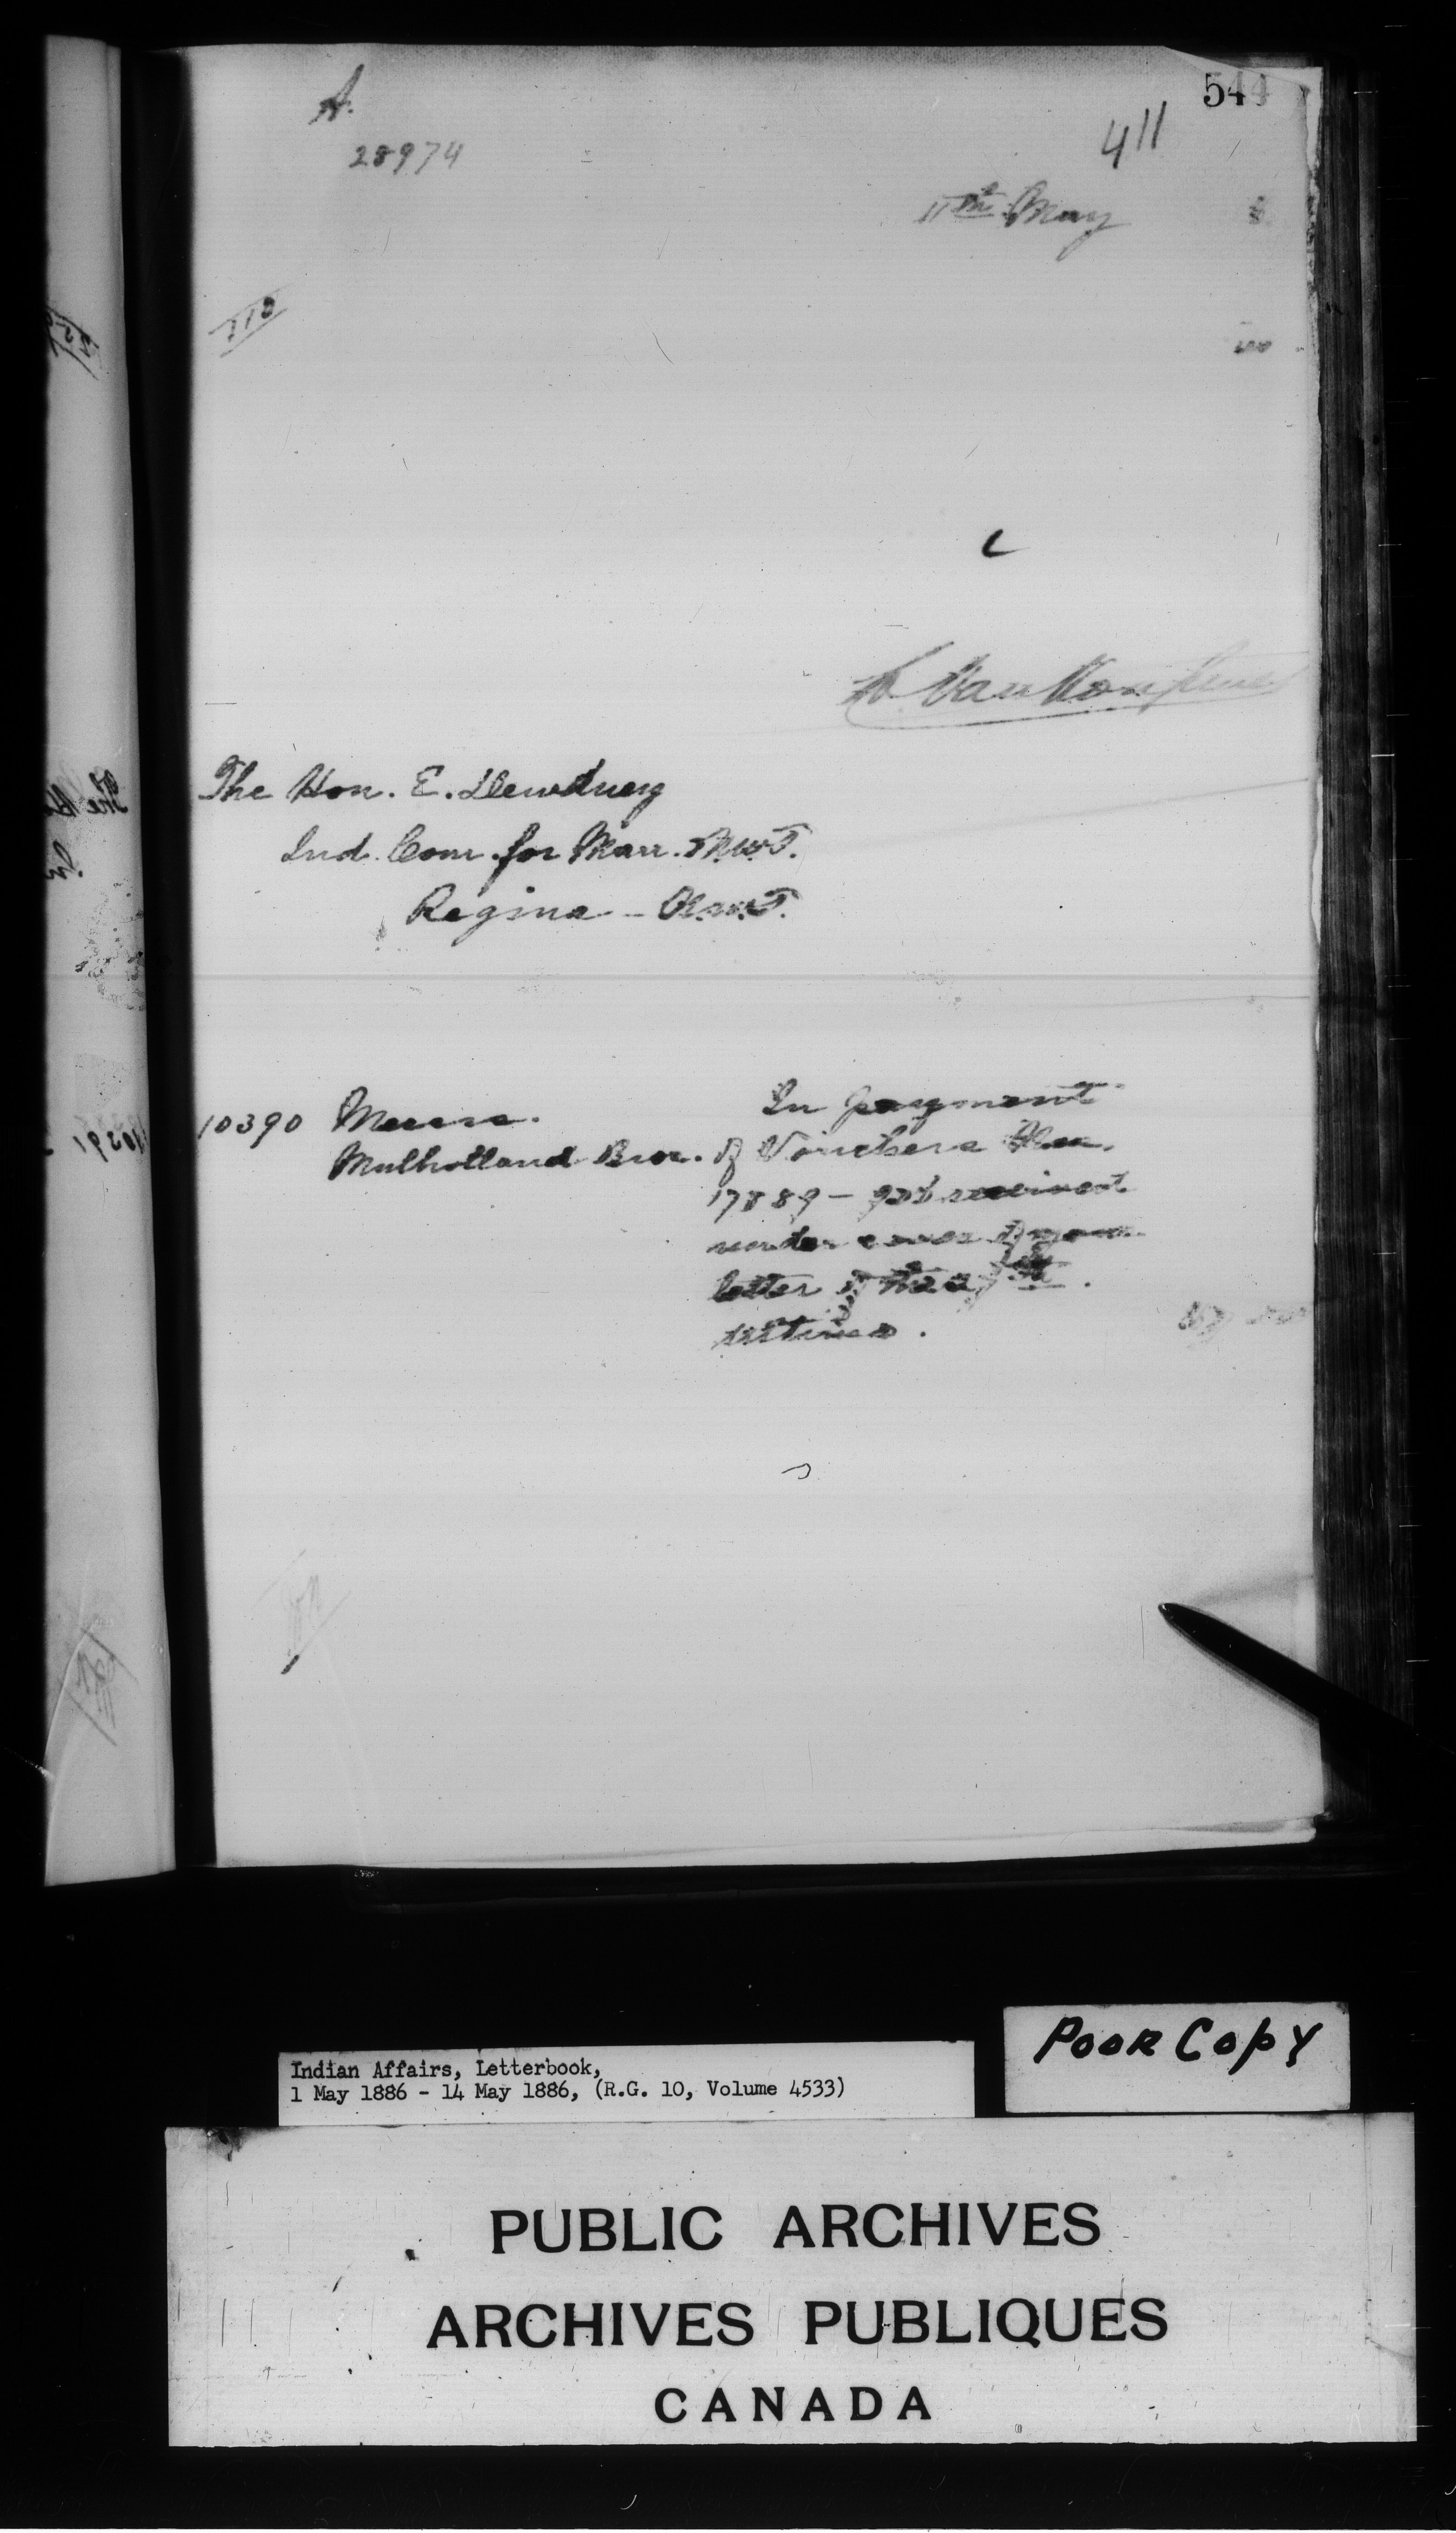 544
A.
411
28974
11th May
110
L. VanKoughnet
The Hon. E. Dewdney
Ind. Com. for Man. N.W.T.
Regina - N.W.T.
10390 Messrs.
In payment
Mulholland Bros. of Vouchers Nos.
17889 - received
under cover of your
letter of the
ultimo.
Poor Copy
Indian Affairs, Letterbook,
1 May 1886 - 14 May 1886, (R.G. 10, Volume 4533)
PUBLIC ARCHIVES
ARCHIVES PUBLIQUES
CANADA